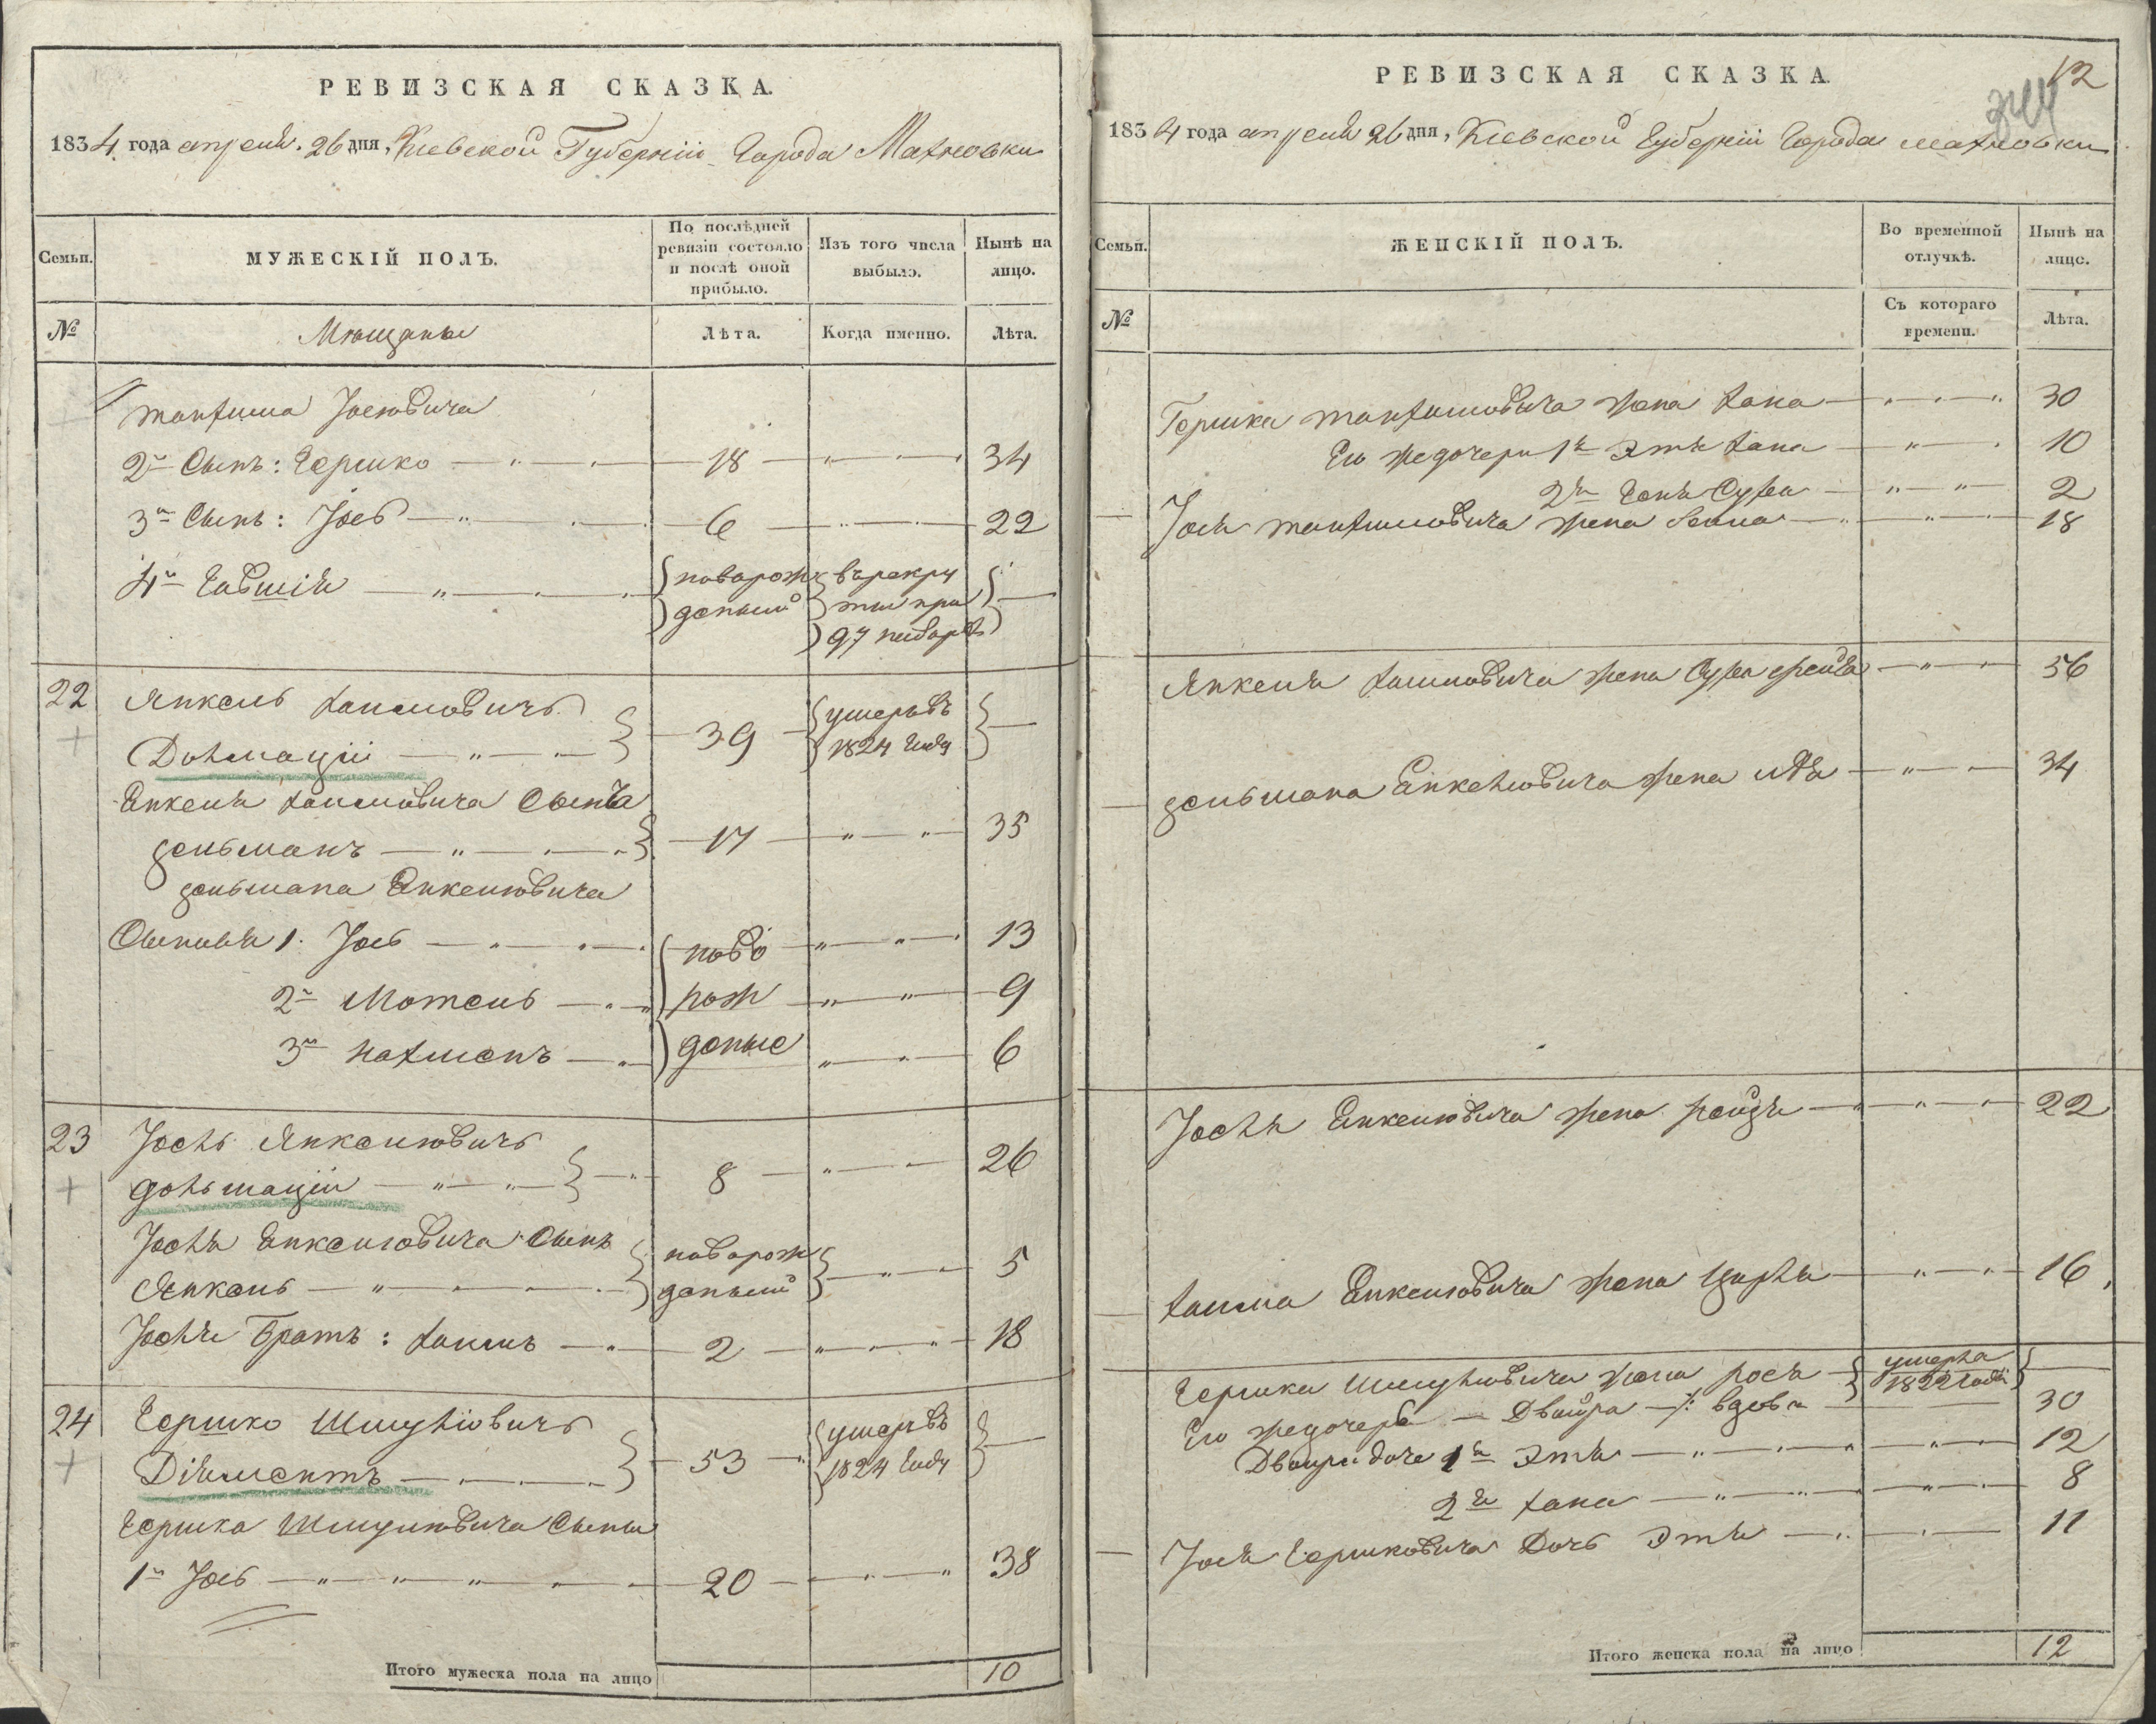 РЕВИЗСКАЯ СКАЗКА.
1834 года апреля 26 дня, Кіевской Губерніи Города Махновки
Семьи. МУЖЕСКІЙ ПОЛЪ. По послѣдней ревизіи состояло и послѣ оной прибыло. Изъ того числа выбыло. Нынѣ на лицо.
№ Мещаны Лѣта. Когда именно. Лѣта.
Иосіовича
2й Сынъ: Гершко 18 34
3й Сынъ: Іось 6 22
4й новорожденный
22 Янкель Хаимовичъ
Долмацій 39 умеръ въ 1824 году
Янкеля Хаимовича Сынъ
Зельманъ 17 35
Зельмана Янкелiовича
Сыновья 1. Іось ново 13
2й Мотель рож 9
3й Нахманъ деные 6
23 Іосль Янкелiовичъ
Дольмаціи 8 26
Іосля Янкелiовича Сынъ
Янкель новорожденный 5
Іосля Братъ: Хаимъ 2 18
24 Гершко Шмулiовичъ
Діяментъ 53 умеръ въ 1824 году
Гершка Шмулiовича Сыны
1й Іось 20 38
Итого мужеска пола на лицо 10
РЕВИЗСКАЯ СКАЗКА. 12
1834 года апреля 26 дня, Кіевской Губерніи Города Махновки
Семьи. ЖЕНСКІЙ ПОЛЪ. Во временной отлучкѣ. Нынѣ на лицо.
№ Съ котораго времени. Лѣта.
Гершка жена Хана 30
Его же дочери 1я Этя Хана 10
2я Геня Сура 2
Іося жена 18
Янкеля Хаимовича жена Сура Фейга 56
Зельмана Янкелiовича жена 34
Іосля Янкелiовича жена Рейзя 22
Хаима Янкелiовича жена Цирля 16
Гершка Шмулiовича жена Рося умерла 1822 года
Его же дочерь Двойра вдова 30
Двойри дочь 1я Этя 12
2я Хана 8
Іося Гершковича Дочь Этя 11
Итого женска пола на лицо 12